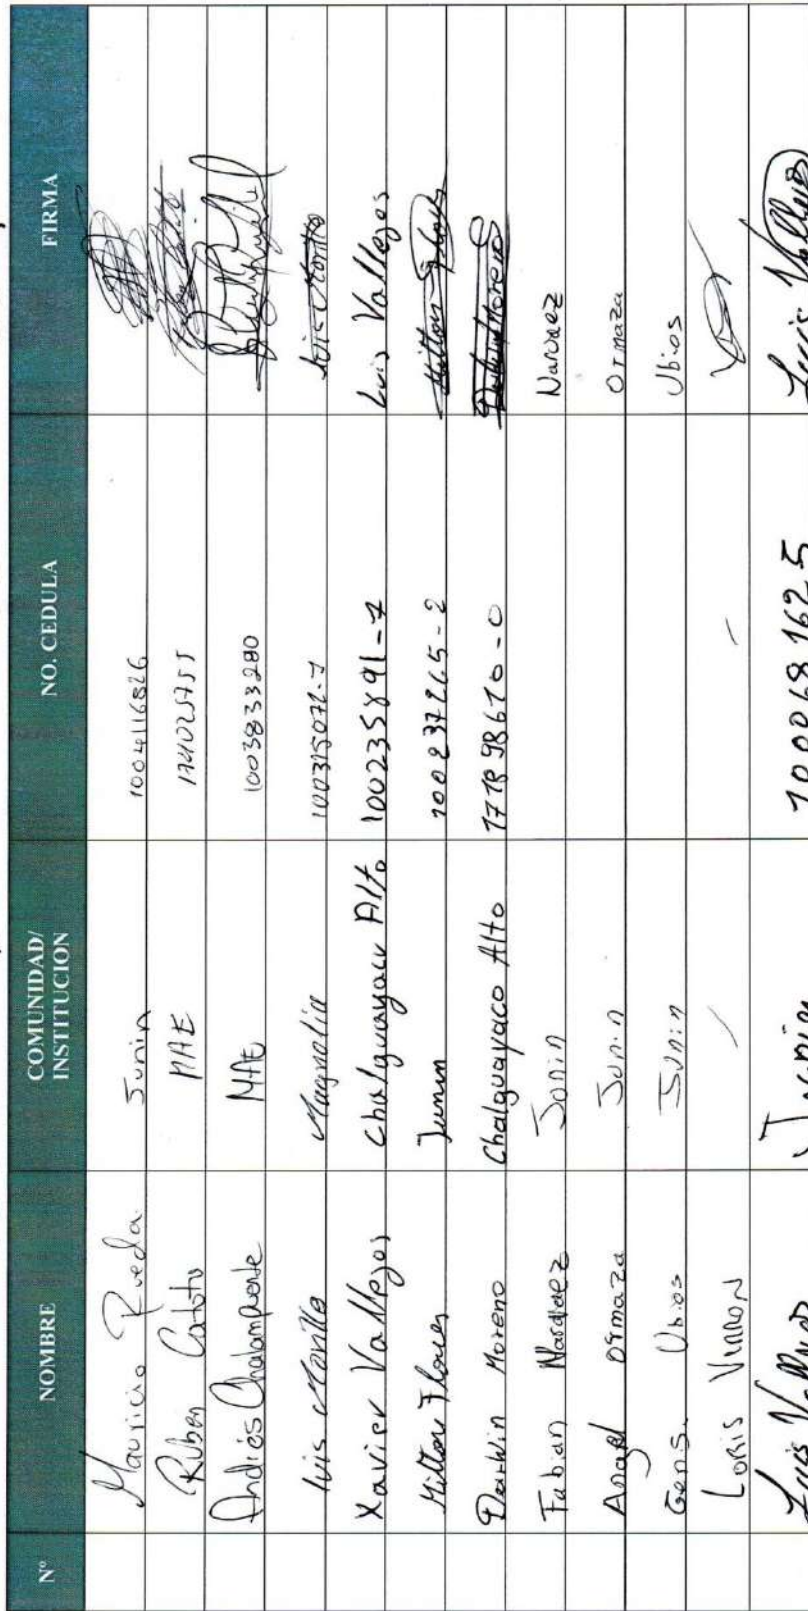 N° NOMBRE COMUNIDAD/ INSTITUCION NO. CEDULA FIRMA
Mauricio Rueda Junin 1004116826
Ruben Catota MAE
Andrés MAE 1003833280
Luis Morillo Magnolia 100315072-7 Luis Morillo
Xavier Vallejos Chalguayacu Alto 100235891-7 Luis Vallejos
Milton Flores Junin 100237265-2 Milton Flores
Darwin Moreno Chalguayaco Alto 171898610-0 Moreno
Fabian Narvaez Junin Narvaez
Angel Ormaza Junin Ormaza
Ubios Junin Ubios
Loris
Luis Vallejos 1000681625 Luis